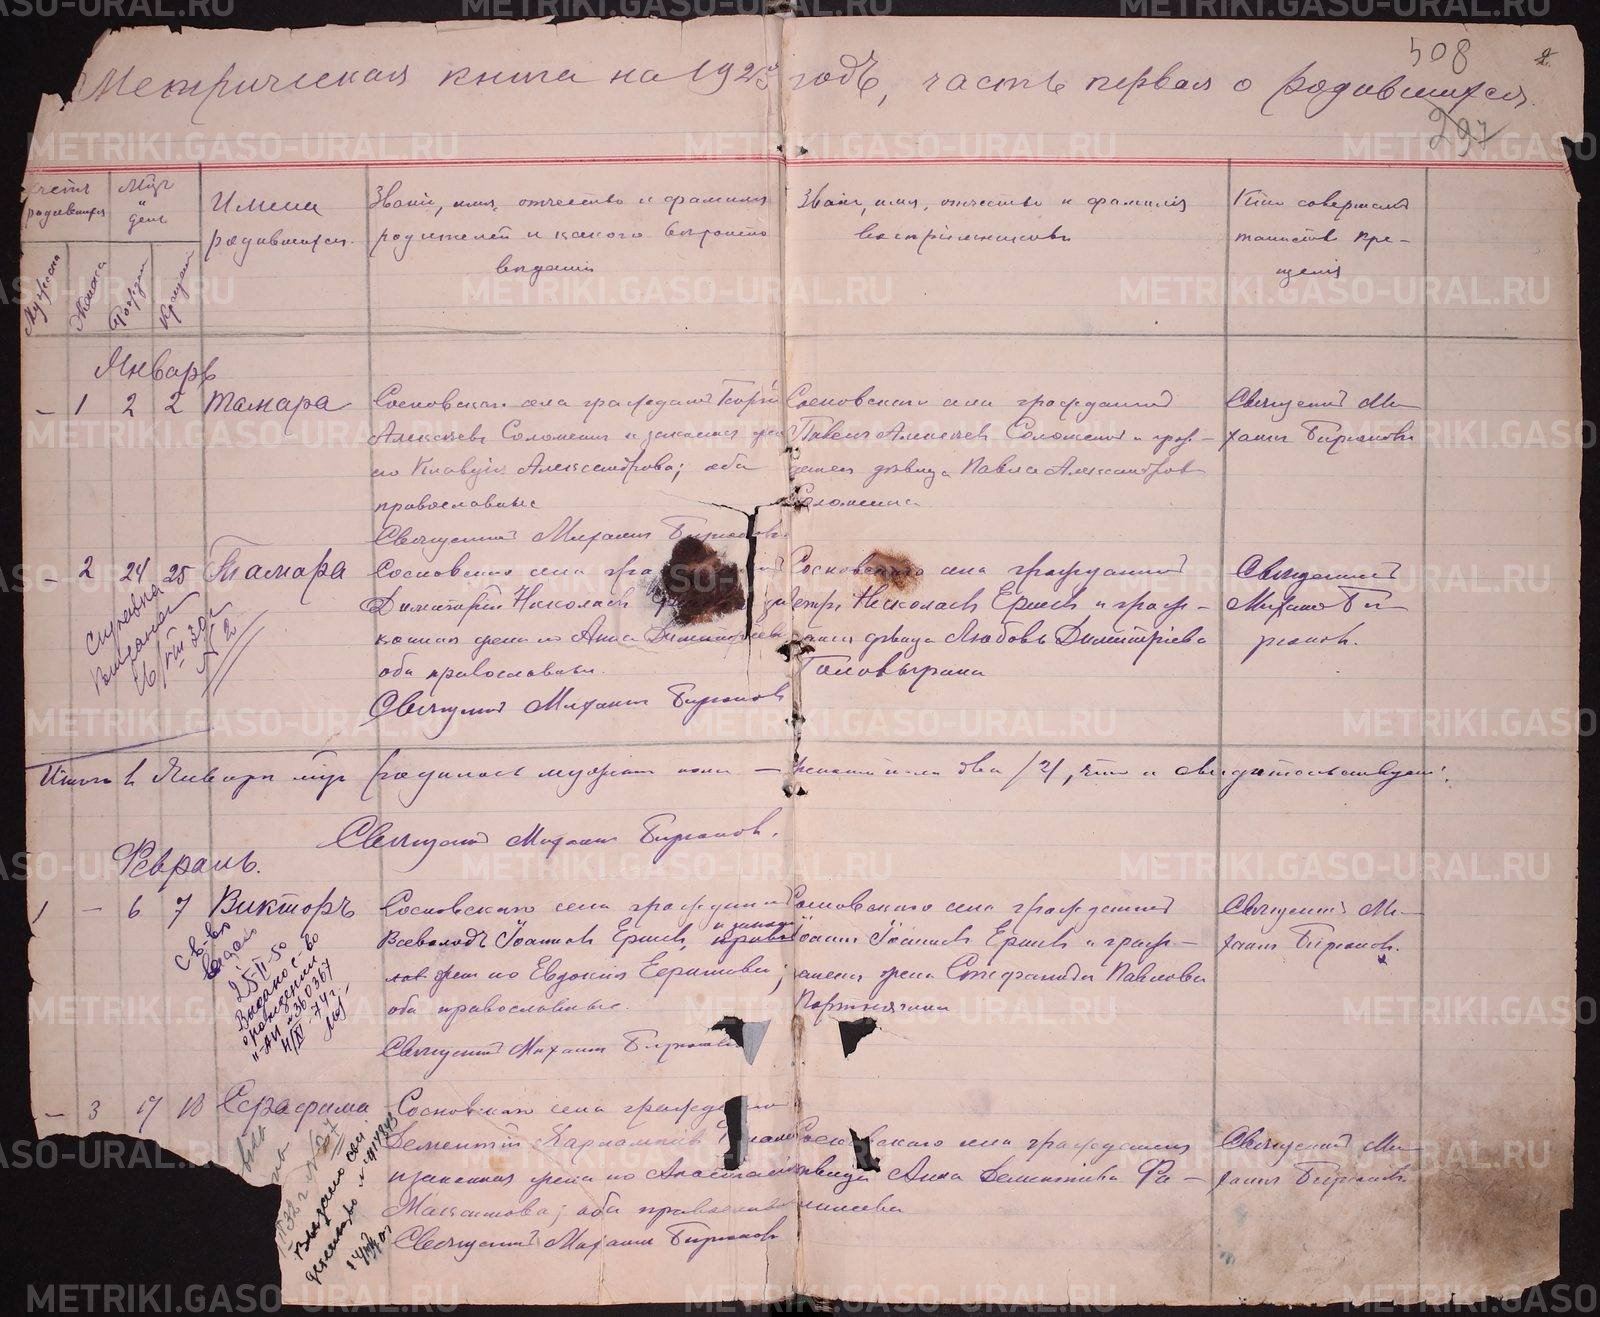 508
Метрическая книга на 1923 годъ, часть первая о родившихся.
297
счетъ родившихся
Мѣс. и день
Имена родившихся.
Званіе, имя, отчество и фамилія родителей и какого вѣроисповѣданія
Званіе, имя, отчество и фамилія воспріемниковъ
Кто совершалъ таинство крещенія
Мужска
Женска
Рожден
Крещен
Январь
– 1 2 2 Тамара
Сосновскаго села гражданинъ Георгій
Алексѣевъ Соломеинъ и законная жена
его Клавдія Александрова; оба
православные
Священникъ Михаилъ Бирюковъ
Сосновскаго села гражданинъ
Павелъ Алексѣевъ Соломеинъ и граж-
данка дѣвица Павла Александрова
Соломеина
Священникъ Ми-
хаилъ Бирюковъ
– 2 24 25 Тамара
Сосновскаго села
Димитрій Николаевъ
конная жена его Анна Димитріева
оба православные.
Священникъ Михаилъ Бирюковъ
Сосновскаго села гражданинъ
Петръ Николаевъ Ершевъ и граж-
данка дѣвица Любовь Димитріева
Головырина
Священникъ
Михаилъ Би-
рюковъ.
Справка
выдана
16/VIII 30 г.
№ 2
Итого въ Январѣ мѣс. родилось мужскаго пола — женскаго пола два /2/, что и свидѣтельствуетъ:
Священникъ Михаилъ Бирюковъ.
Февраль.
1 – 6 7 Викторъ
Сосновскаго села гражданинъ
Всеволодъ Іоанновъ Ершевъ, и законная
жена его Евдокія
оба православные.
Священникъ Михаилъ Бирюковъ
Сосновскаго села гражданинъ
Іоаннъ Іоанновъ Ершевъ и граж-
данка жена Стефанида Павлова
Портнягина
Священникъ Ми-
хаилъ Бирюковъ.
св-во
выдано
25-II-50
Выдано с-во
о рождении
"-АИ" № 360367
4/XI-74 г.
– 3 17 18 Серафима
Сосновскаго села гражданинъ
Дементій Харлампіевъ
и законная жена его Анастасія
Максимова; оба православные
Священникъ Михаилъ Бирюковъ
Сосновскаго села гражданка
дѣвица Анна Дементіева Фа-
Священникъ Ми-
хаилъ Бирюковъ
Выдано свид.
METRIKI.GASO-URAL.RU